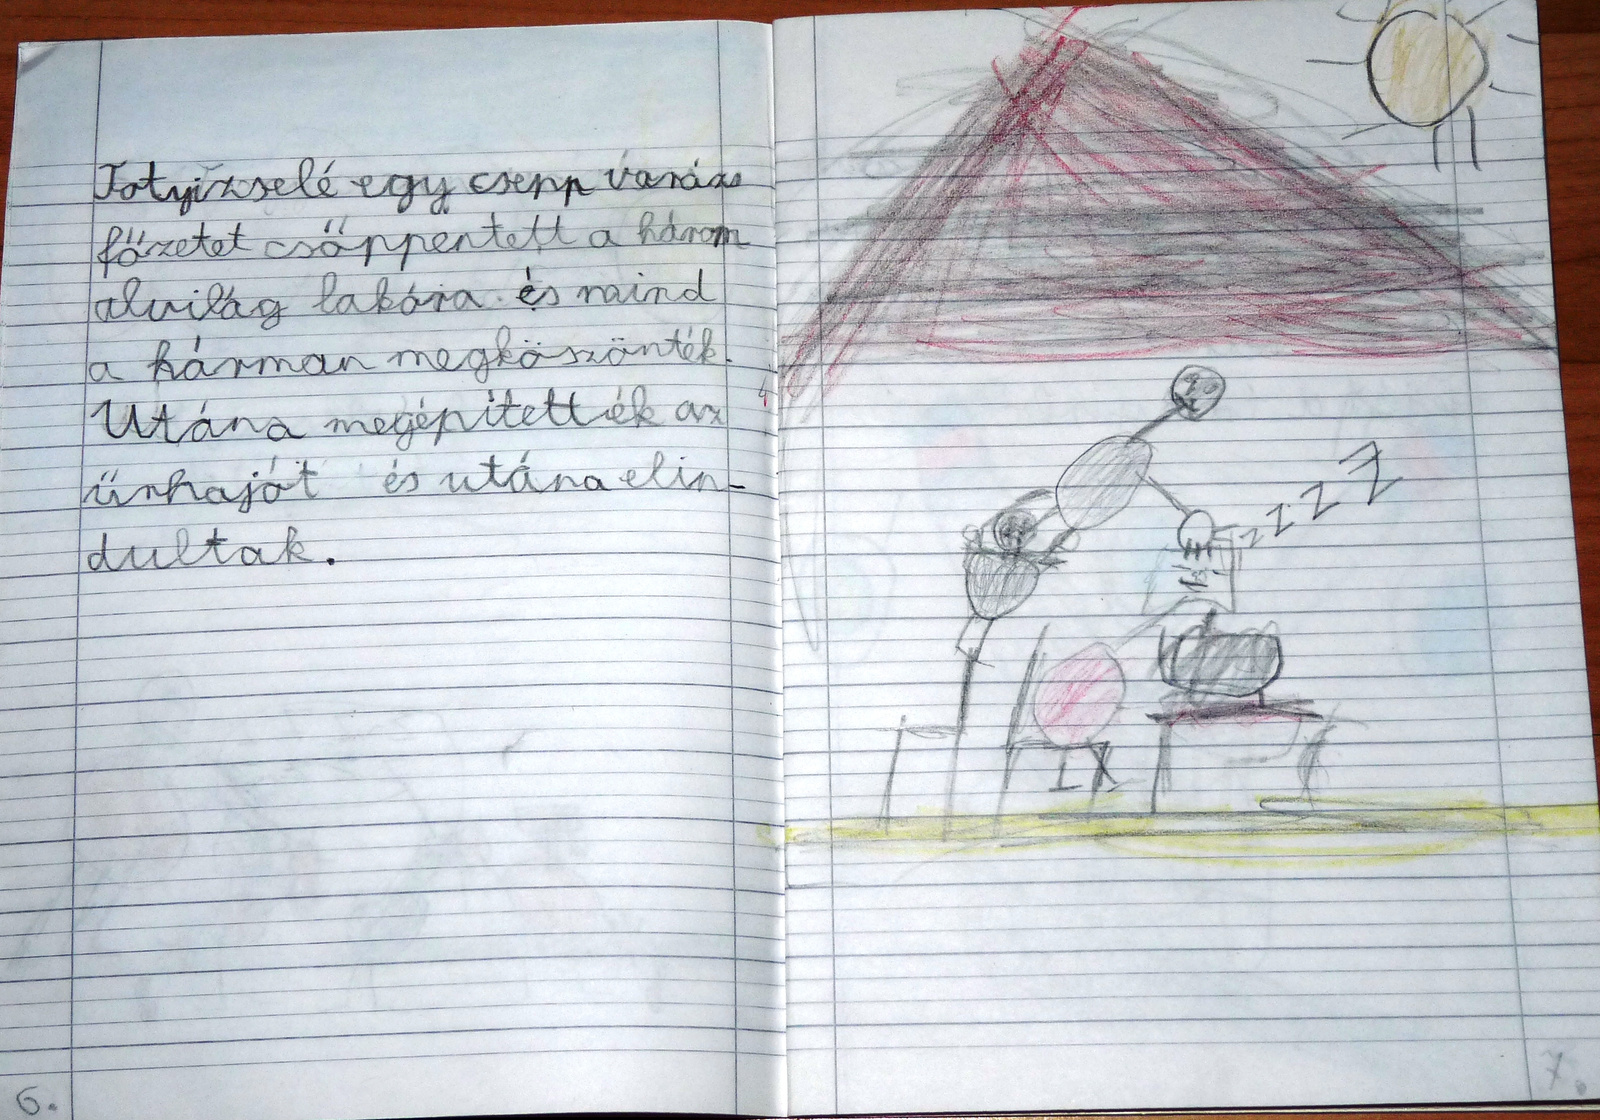 Totyizselé egy csepp varázs
főzetet csöppentett a három
alvilág lakóra és maind
a hárman megköszönték.
Utána megépítették az
űrhajót és utána elin-
dultak.
6.
z z z Z
7.